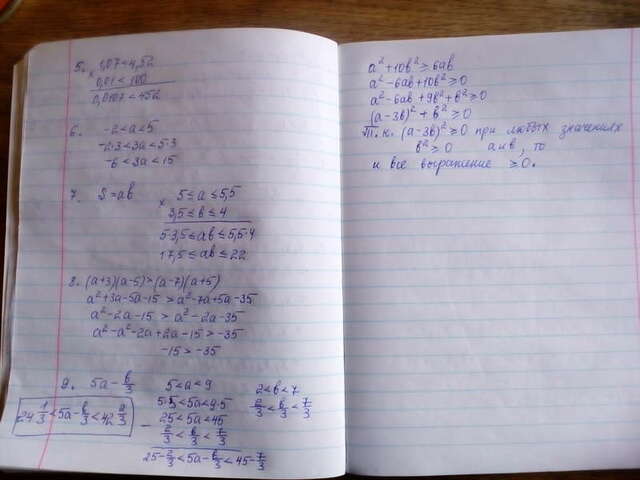 5. 1,07 < 4,52
× 0,01 < 100
0,0107 < 452
6. -2 < a < 5
-2·3 < 3a < 5·3
-6 < 3a < 15
7. S = ab
× 5 ≤ a ≤ 5,5
3,5 ≤ b ≤ 4
5·3,5 ≤ ab ≤ 5,5·4
17,5 ≤ ab ≤ 22
8. (a+3)(a-5) > (a-7)(a+5)
a²+3a-5a-15 > a²-7a+5a-35
a²-2a-15 > a²-2a-35
a²-a²-2a+2a-15 > -35
-15 > -35
9. 5a - b/3 5 < a < 9 2 < b < 7
5·5 < 5a < 9·5 2/3 < b/3 < 7/3
25 < 5a < 45
24 1/3 < 5a - b/3 < 42 2/3
- 2/3 < b/3 < 7/3
25 - 2/3 < 5a - b/3 < 45 - 7/3
a² + 10b² ≥ 6ab
a² - 6ab + 10b² ≥ 0
a² - 6ab + 9b² + b² ≥ 0
(a-3b)² + b² ≥ 0
Т.к. (a-3b)² ≥ 0 при любых значениях
b² ≥ 0 a и b, то
и все выражение ≥ 0.